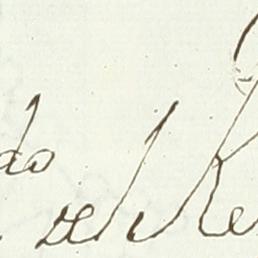 do
del Re